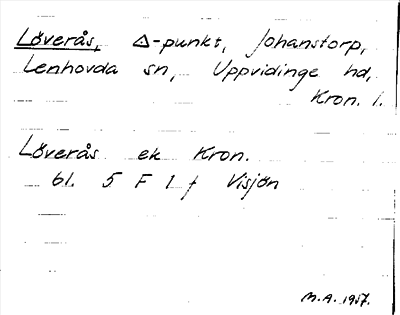 Löverås, △-punkt, Johanstorp,
Lenhovda sn, Uppvidinge hd,
Kron. l.
Löverås ek Kron.
61. 5 F 1 f Visjön
M.A. 1957.